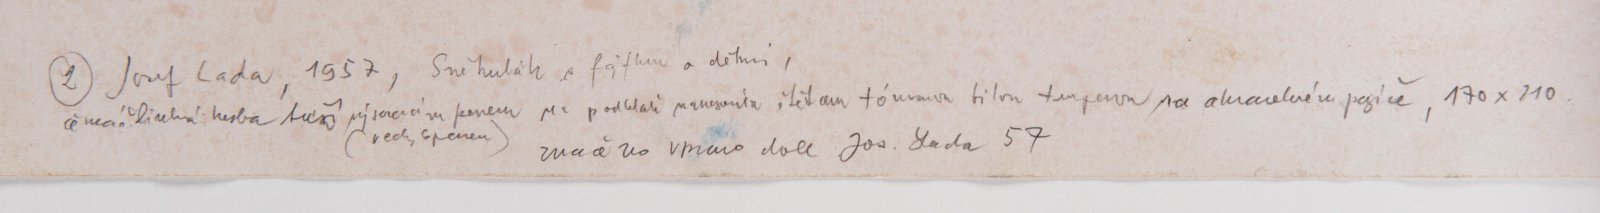 2 Josef Lada, 1957, Sněhulák s fajfkou a dětmi,
černá linková kresba tuší rýsovacím perem na podkladě nanesené štětcem tónované bílou temperou na akvarelovém papíře, 170 x 210.
(redis perem) značeno vpravo dole Jos. Lada 57